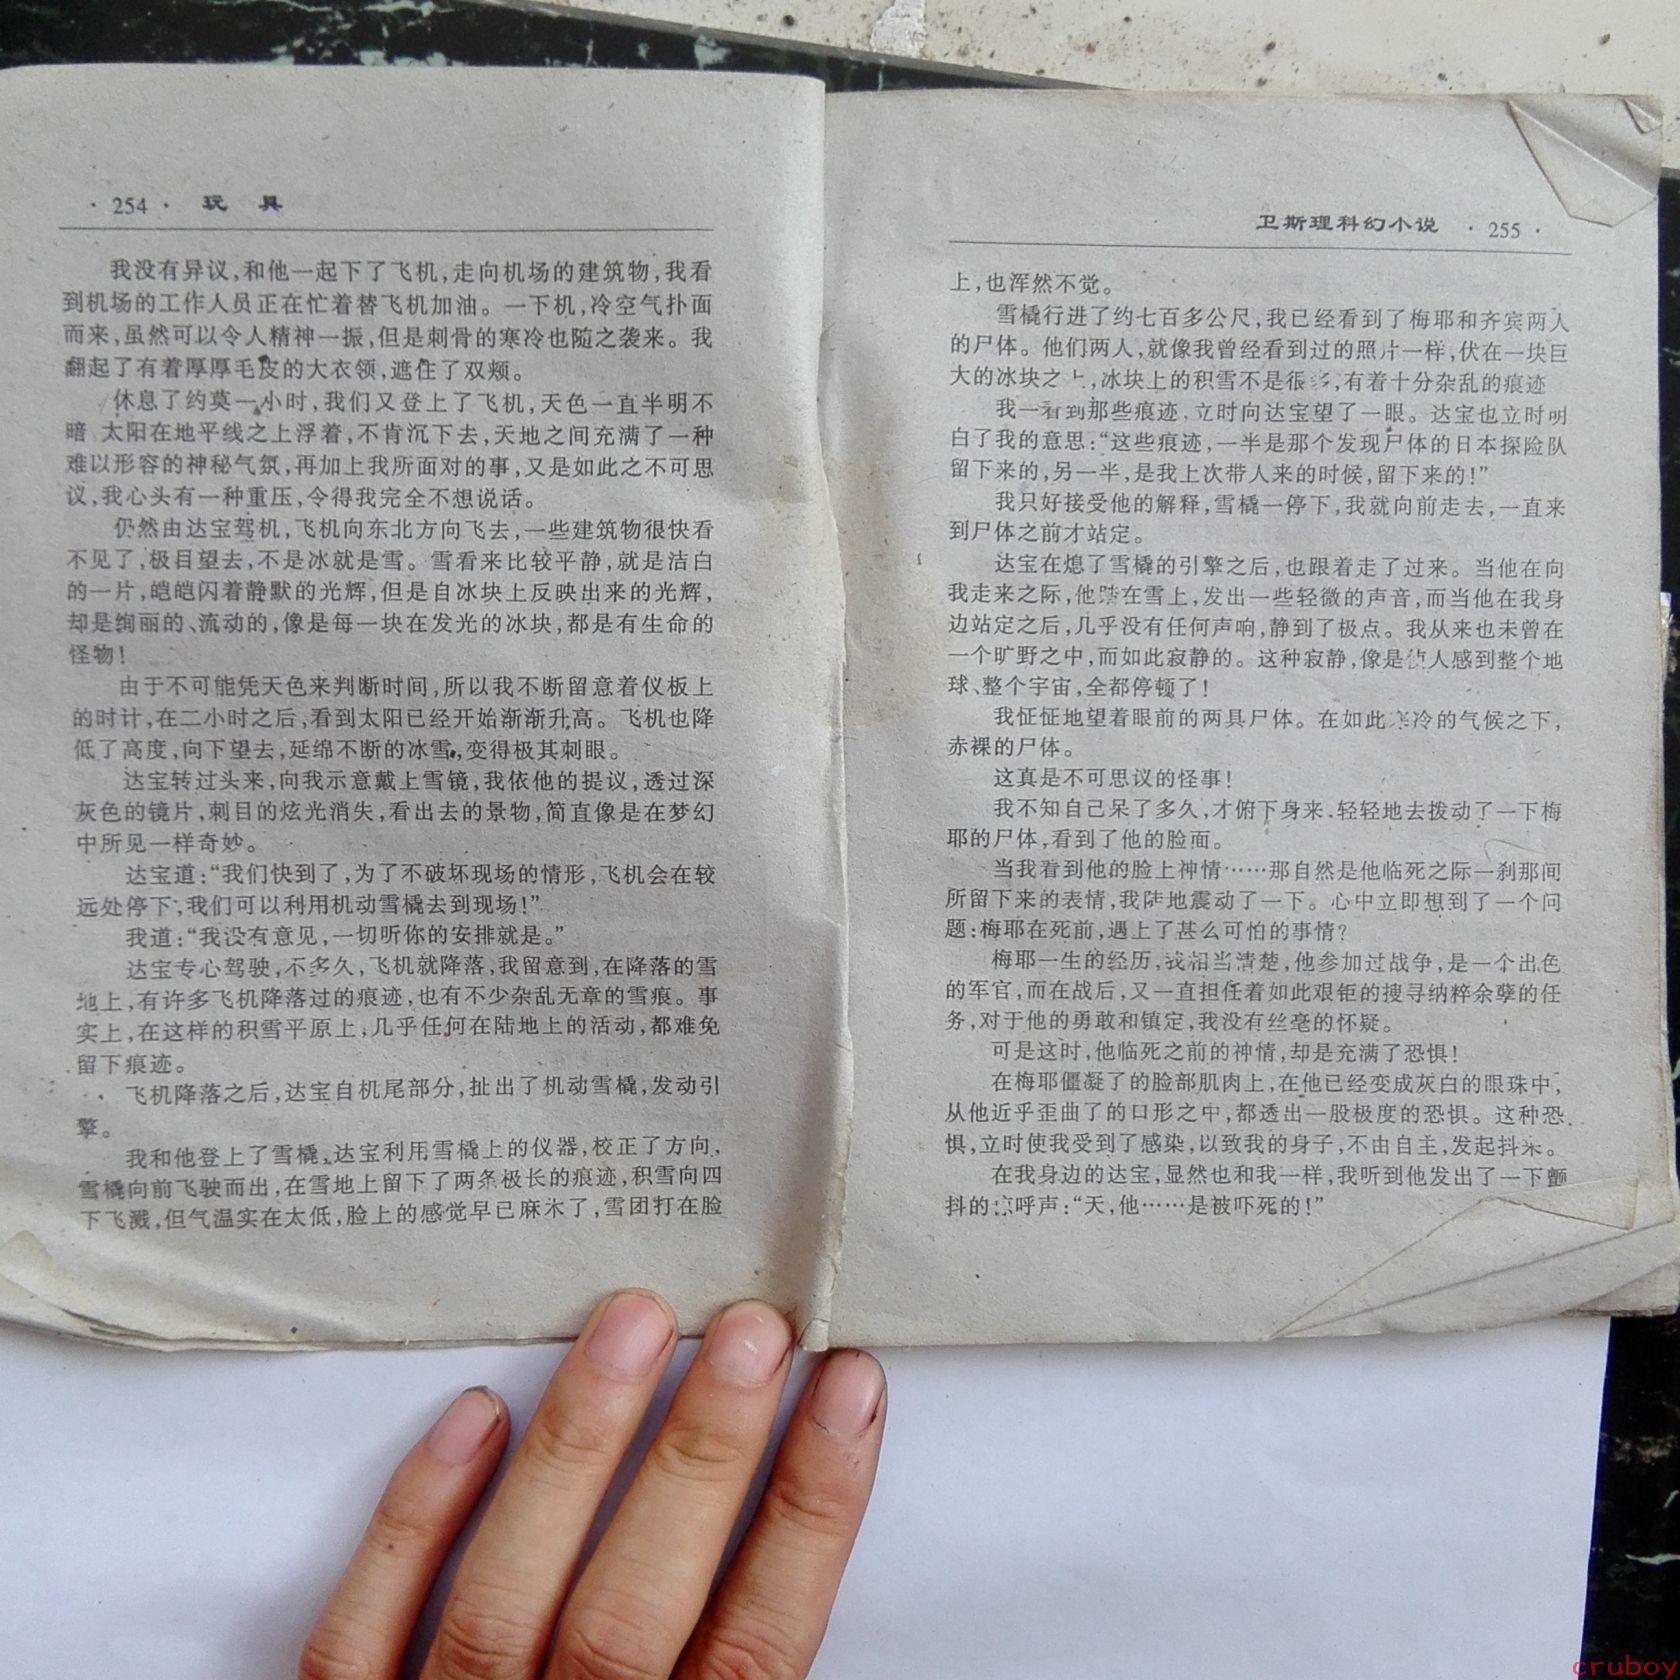 · 254 · 玩 具
我没有异议,和他一起下了飞机,走向机场的建筑物,我看
到机场的工作人员正在忙着替飞机加油。一下机,冷空气扑面
而来,虽然可以令人精神一振,但是刺骨的寒冷也随之袭来。我
翻起了有着厚厚毛皮的大衣领,遮住了双颊。
休息了约莫一小时,我们又登上了飞机,天色一直半明不
暗 太阳在地平线之上浮着,不肯沉下去,天地之间充满了一种
难以形容的神秘气氛,再加上我所面对的事,又是如此之不可思
议,我心头有一种重压,令得我完全不想说话。
仍然由达宝驾机,飞机向东北方向飞去,一些建筑物很快看
不见了,极目望去,不是冰就是雪。雪看来比较平静,就是洁白
的一片,皑皑闪着静默的光辉,但是自冰块上反映出来的光辉,
却是绚丽的、流动的,像是每一块在发光的冰块,都是有生命的
怪物!
由于不可能凭天色来判断时间,所以我不断留意着仪板上
的时计,在二小时之后,看到太阳已经开始渐渐升高。飞机也降
低了高度,向下望去,延绵不断的冰雪,变得极其刺眼。
达宝转过头来,向我示意戴上雪镜,我依他的提议,透过深
灰色的镜片,刺目的炫光消失,看出去的景物,简直像是在梦幻
中所见一样奇妙。
达宝道:“我们快到了,为了不破坏现场的情形,飞机会在较
远处停下,我们可以利用机动雪橇去到现场!”
我道:“我没有意见,一切听你的安排就是。”
达宝专心驾驶,不多久,飞机就降落,我留意到,在降落的雪
地上,有许多飞机降落过的痕迹,也有不少杂乱无章的雪痕。事
实上,在这样的积雪平原上,几乎任何在陆地上的活动,都难免
留下痕迹。
飞机降落之后,达宝自机尾部分,扯出了机动雪橇,发动引
擎。
我和他登上了雪橇,达宝利用雪橇上的仪器,校正了方向,
雪橇向前飞驶而出,在雪地上留下了两条极长的痕迹,积雪向四
下飞溅,但气温实在太低,脸上的感觉早已麻木了,雪团打在脸
卫斯理科幻小说 · 255 ·
上,也浑然不觉。
雪橇行进了约七百多公尺,我已经看到了梅耶和齐宾两人
的尸体。他们两人,就像我曾经看到过的照片一样,伏在一块巨
大的冰块之上,冰块上的积雪不是很多,有着十分杂乱的痕迹
我一看到那些痕迹,立时向达宝望了一眼。达宝也立时明
白了我的意思:“这些痕迹,一半是那个发现尸体的日本探险队
留下来的,另一半,是我上次带人来的时候,留下来的!”
我只好接受他的解释,雪橇一停下,我就向前走去,一直来
到尸体之前才站定。
达宝在熄了雪橇的引擎之后,也跟着走了过来。当他在向
我走来之际,他踏在雪上,发出一些轻微的声音,而当他在我身
边站定之后,几乎没有任何声响,静到了极点。我从来也未曾在
一个旷野之中,而如此寂静的。这种寂静,像是使人感到整个地
球、整个宇宙,全都停顿了!
我怔怔地望着眼前的两具尸体。在如此寒冷的气候之下,
赤裸的尸体。
这真是不可思议的怪事!
我不知自己呆了多久,才俯下身来,轻轻地去拨动了一下梅
耶的尸体,看到了他的脸面。
当我看到他的脸上神情……那自然是他临死之际一刹那间
所留下来的表情,我陡地震动了一下。心中立即想到了一个问
题:梅耶在死前,遇上了甚么可怕的事情?
梅耶一生的经历,我相当清楚,他参加过战争,是一个出色
的军官,而在战后,又一直担任着如此艰钜的搜寻纳粹余孽的任
务,对于他的勇敢和镇定,我没有丝毫的怀疑。
可是这时,他临死之前的神情,却是充满了恐惧!
在梅耶僵凝了的脸部肌肉上,在他已经变成灰白的眼珠中,
从他近乎歪曲了的口形之中,都透出一股极度的恐惧。这种恐
惧,立时使我受到了感染,以致我的身子,不由自主,发起抖来。
在我身边的达宝,显然也和我一样,我听到他发出了一下颤
抖的惊呼声:“天,他……是被吓死的!”
cruboy